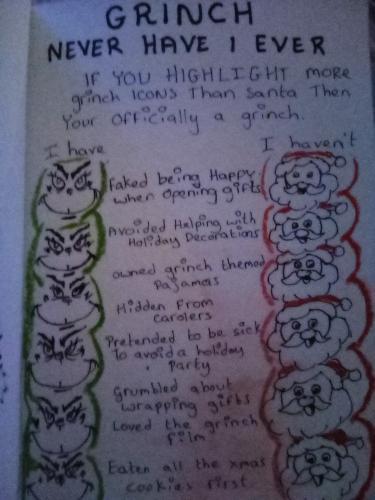 GRINCH
NEVER HAVE I EVER
IF YOU HIGHLIGHT MORE
grinch ICONS Than Santa Then
Your Officially a grinch.
I have
I haven't
Faked being Happy
when opening gifts
Avoided Helping with
Holiday Decorations
owned grinch themed
Pajamas
Hidden From
Carolers
Pretended to be sick
To avoid a holiday
Party
Grumbled about
wrapping gifts
Loved the grinch
film
Eaten all the xmas
cookies first